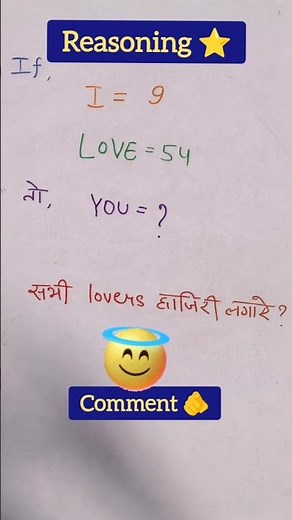 Reasoning ⭐
If,
I = 9
LOVE = 54
तो, YOU = ?
सभी lovers हाजिरी लगारे ?
Comment 🫵